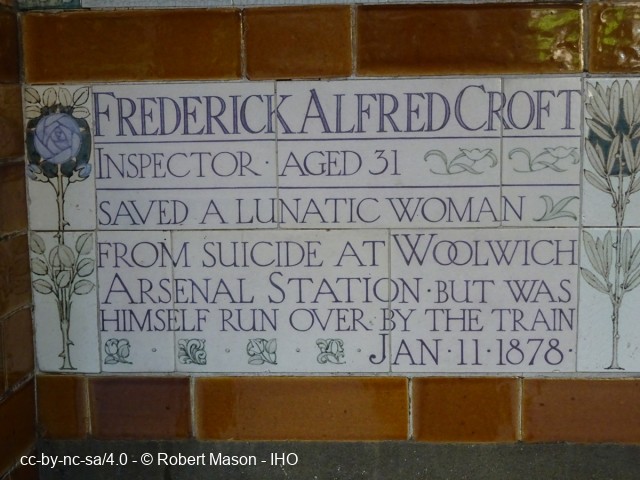 FREDERICK ALFRED CROFT
INSPECTOR · AGED 31
SAVED A LUNATIC WOMAN
FROM SUICIDE AT WOOLWICH
ARSENAL STATION · BUT WAS
HIMSELF RUN OVER BY THE TRAIN
JAN · 11 · 1878 ·
cc-by-nc-sa/4.0 - © Robert Mason - IHO